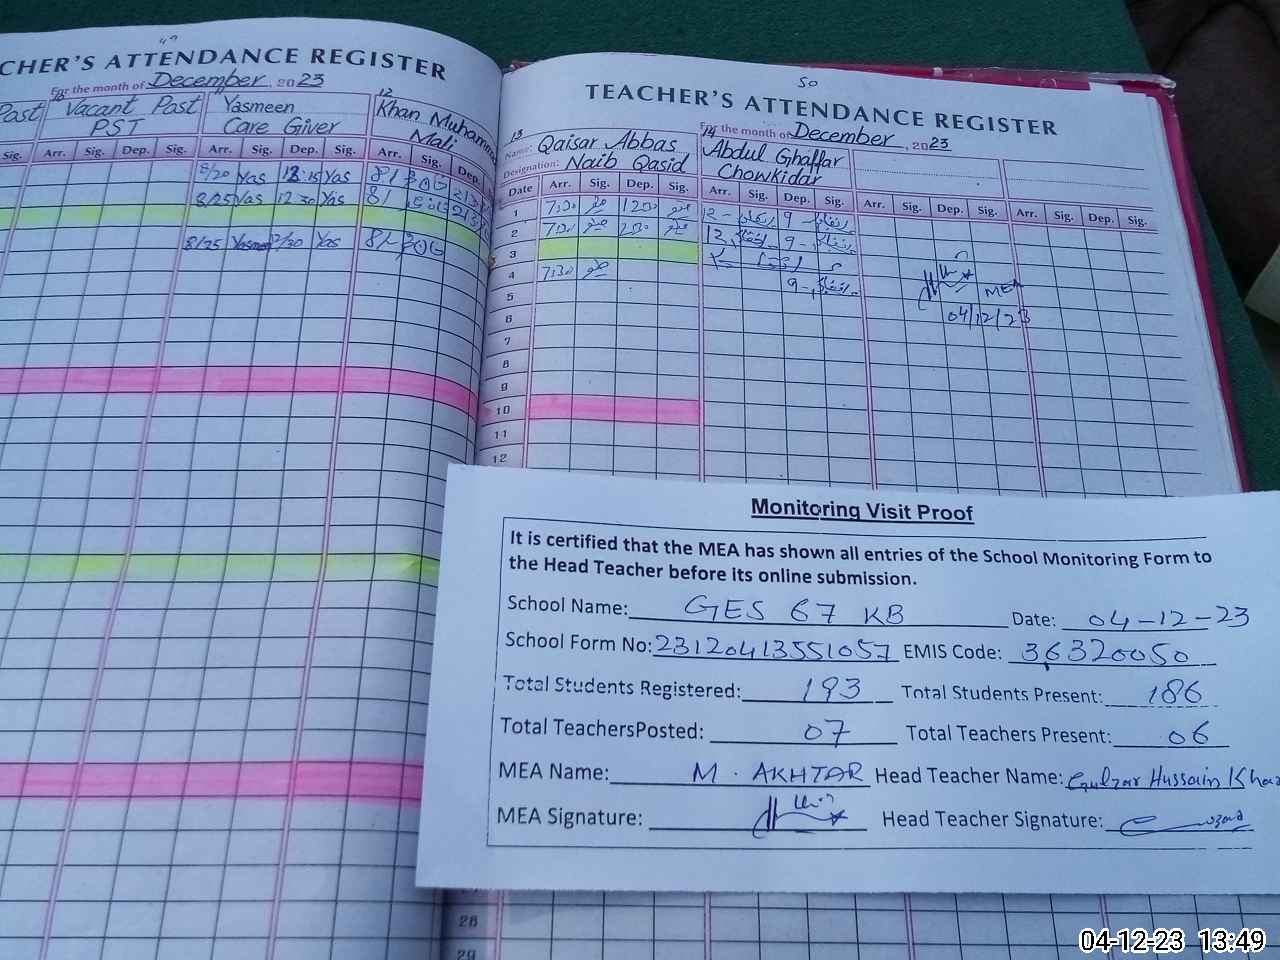 49
CHER'S ATTENDANCE REGISTER
For the month of December, 2023
Post
Vacant Post
PST
Yasmeen
Care Giver
12
Khan Muhamm
Mali
Sig. Arr. Sig. Dep. Sig. Arr. Sig. Dep. Sig. Arr. Sig. Dep.
8/20 Yas 12:15 Yas
8/25 Yas 12 30 Yas
8/25 Yasmeen Yas
50
TEACHER'S ATTENDANCE REGISTER
For the month of December, 2023
13
Name: Qaisar Abbas
Designation: Naib Qasid
14
Abdul Ghaffar
Chowkidar
Date Arr. Sig. Dep. Sig. Arr. Sig. Dep. Sig. Arr. Sig. Dep. Sig. Arr. Sig. Dep. Sig.
1 7:30 1200 12 - 9 -
2 7:30 12 9 -
3
4 7:30 9 -
MEA
5
6 04/12/23
7
8
9
10
11
12
Monitoring Visit Proof
It is certified that the MEA has shown all entries of the School Monitoring Form to
the Head Teacher before its online submission.
School Name: GES 67 KB Date: 04-12-23
School Form No: 23120413551057 EMIS Code: 36320050
Total Students Registered: 193 Total Students Present: 186
Total TeachersPosted: 07 Total Teachers Present: 06
MEA Name: M. AKHTAR Head Teacher Name: Gulzar Hussain Khan
MEA Signature: Head Teacher Signature:
28
29
04-12-23 13:49